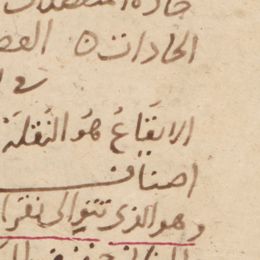 حادة المنفصلات
الحادات ٥ الفص
الايقاع هو النقلة
اصناف
وهو الذى تتوالى نقرا